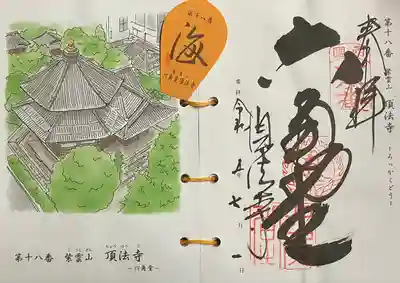 第十八番 紫雲山 頂法寺 -ろっかくどう-
奉拝
六角堂
頂法寺
令和 五 七月 一日
第十八番
海
六角堂頂法寺
第十八番 紫雲山 頂法寺
-六角堂-